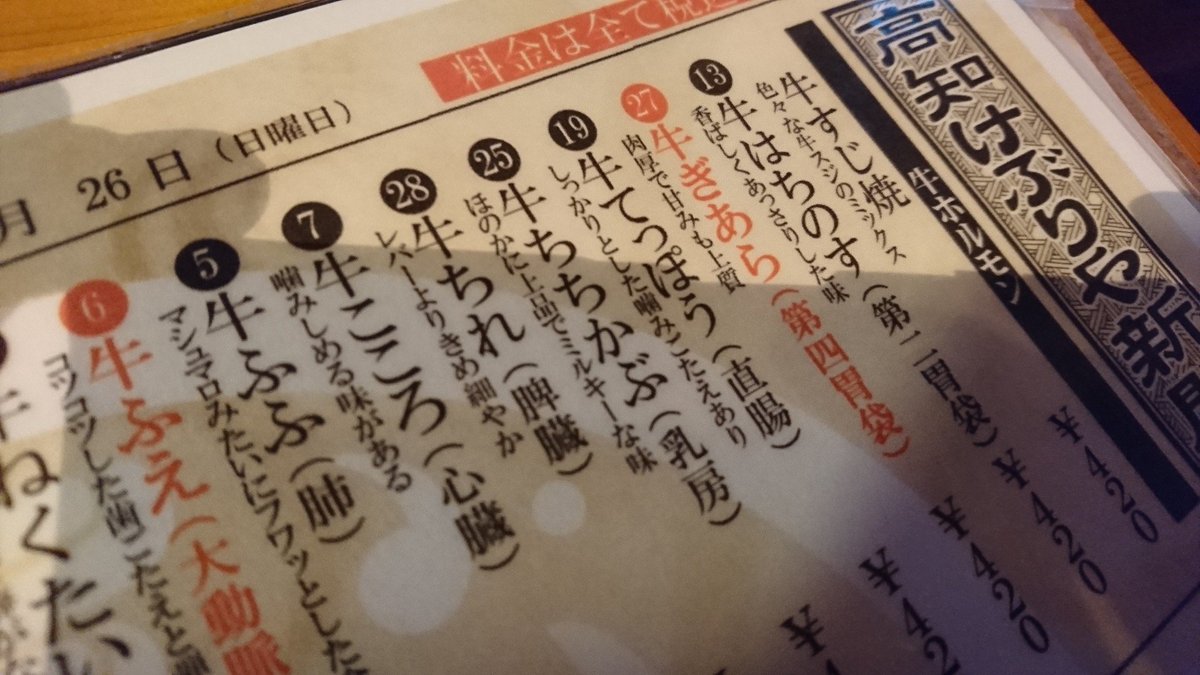 高知けぶりや新
料金は全て税
月 26日（日曜日）
牛ホルモン
牛すじ焼 ¥420
色々な牛スジのミックス
13 牛はちのす（第二胃袋） ¥420
香ばしくあっさりした味
27 牛ぎあら（第四胃袋） ¥420
肉厚で甘みも上質
19 牛てっぽう（直腸） ¥42
しっかりとした噛みごたえあり
25 牛ちちかぶ（乳房） ¥
ほのかに上品でミルキーな味
28 牛ちれ（脾臓）
レバーよりきめ細やか
7 牛こころ（心臓）
噛みしめる味がある
5 牛ふふ（肺）
マシュマロみたいにフワッとした
6 牛ふえ（大動脈
コツコツした歯ごたえと
牛ねくたい